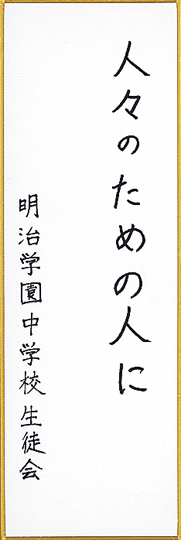 人々のための人に
明治学園中学校生徒会